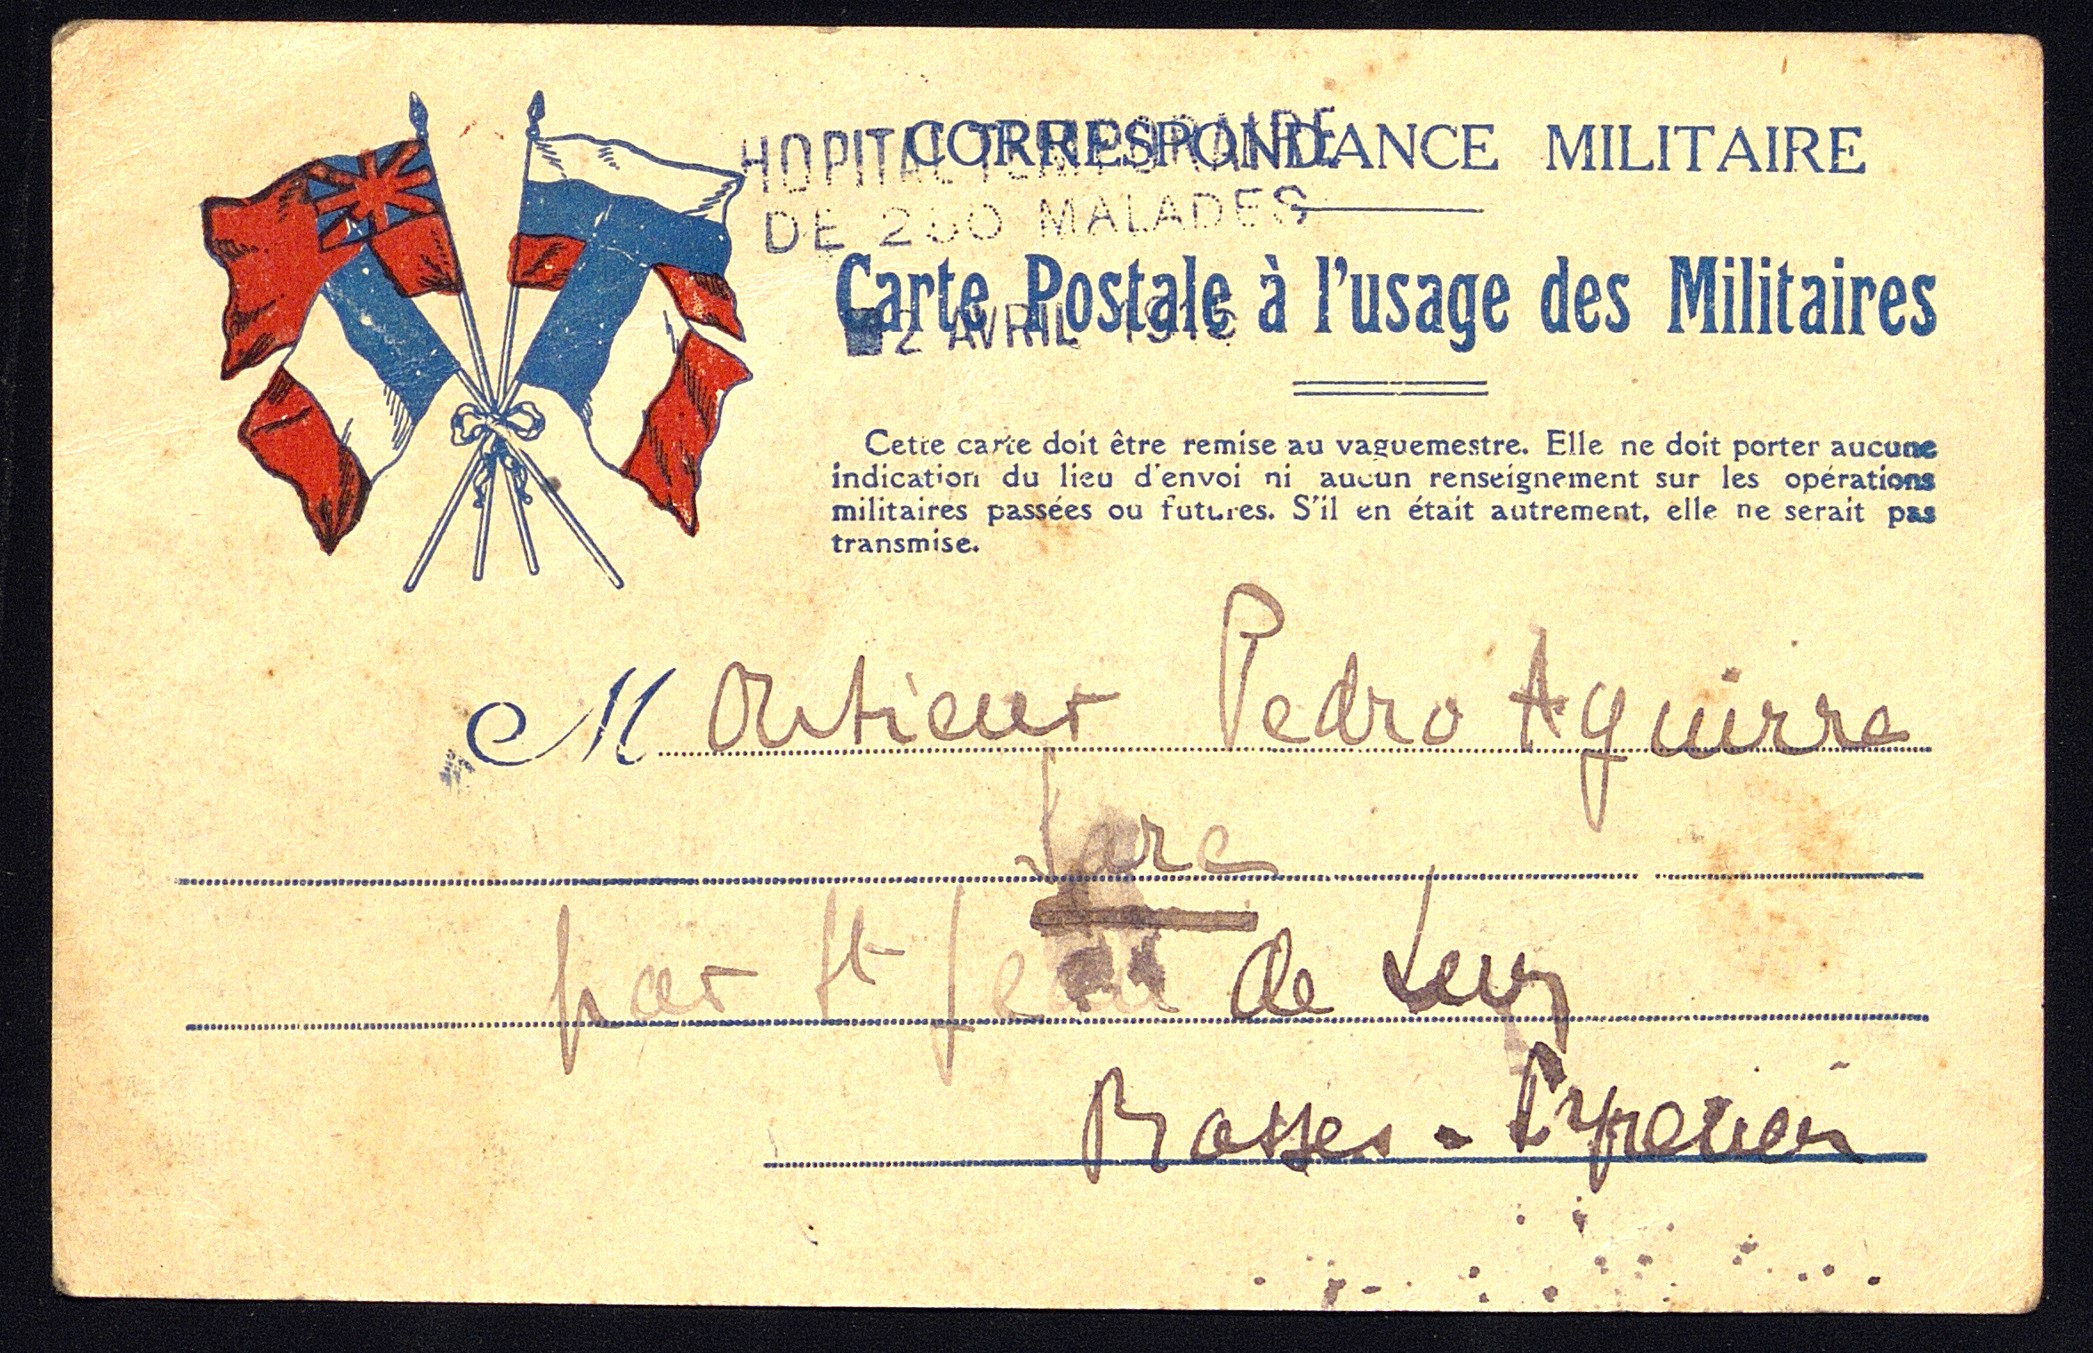 CORRESPONDANCE MILITAIRE
HOPITAL TEMPORAIRE
DE 250 MALADES
Carte Postale à l'usage des Militaires
2 AVRIL 1916
Cette carte doit être remise au vaguemestre. Elle ne doit porter aucune
indication du lieu d'envoi ni aucun renseignement sur les opérations
militaires passées ou futures. S'il en était autrement, elle ne serait pas
transmise.
Monsieur Pedro Aguirre
Sare
par St Jean de Luz
Basses-Pyrénées